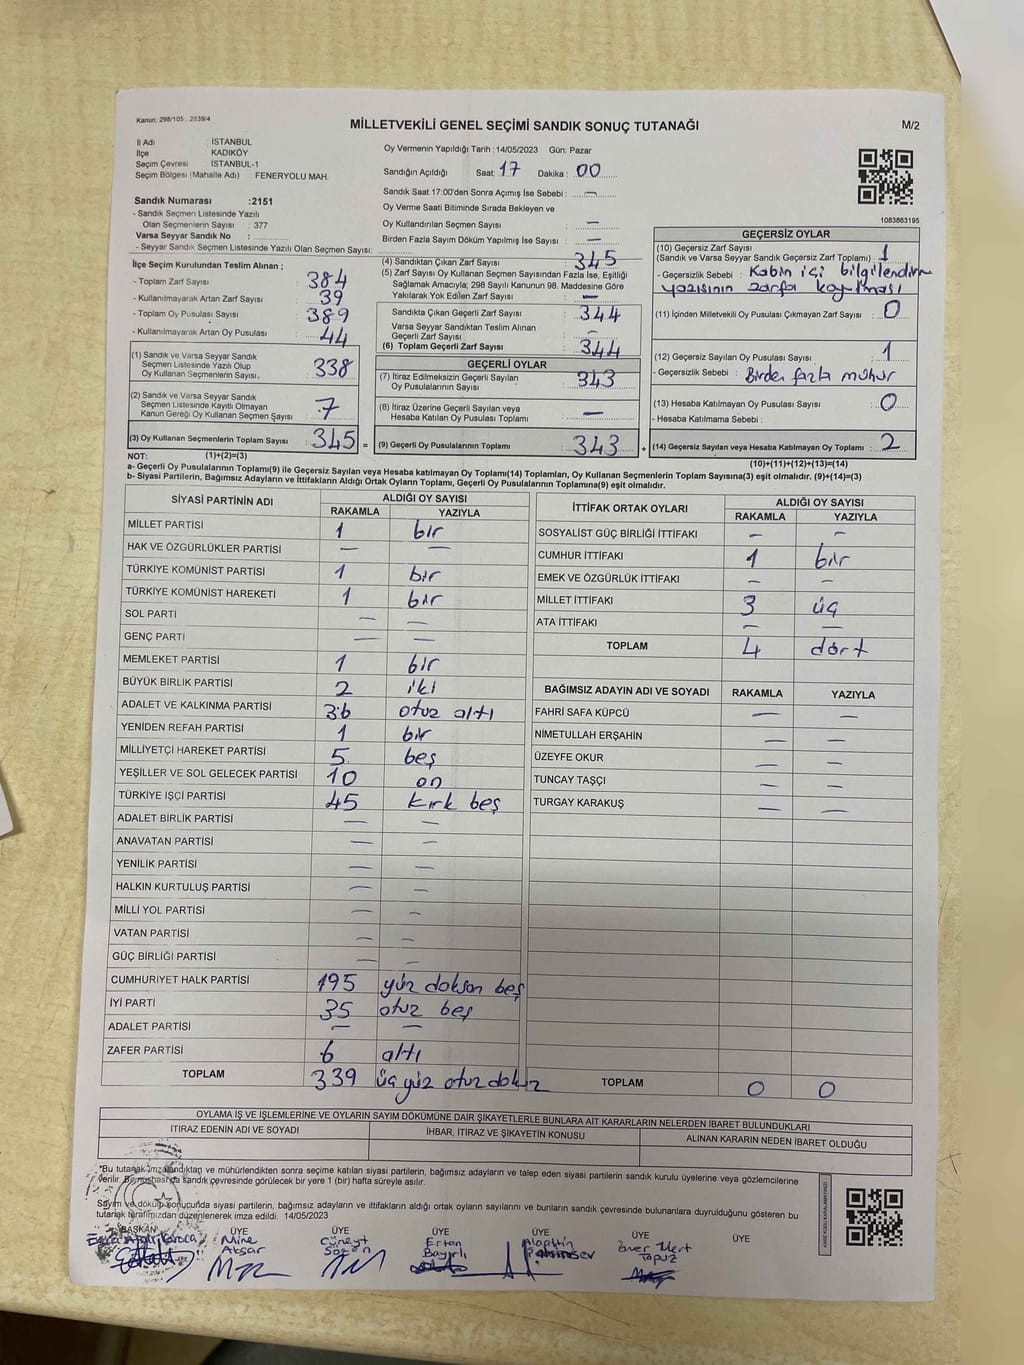 Kanun: 298/105 , 2839/4
MİLLETVEKİLİ GENEL SEÇİMİ SANDIK SONUÇ TUTANAĞI
M/2
İl Adı : İSTANBUL
İlçe : KADIKÖY
Seçim Çevresi : İSTANBUL-1
Seçim Bölgesi (Mahalle Adı) : FENERYOLU MAH.
Oy Vermenin Yapıldığı Tarih :14/05/2023 Gün: Pazar
Sandığın Açıldığı Saat: 17 Dakika : 00
Sandık Saat 17:00'den Sonra Açımış İse Sebebi : —
Oy Verme Saati Bitiminde Sırada Bekleyen ve
Oy Kullandırılan Seçmen Sayısı : —
Birden Fazla Sayım Döküm Yapılmış İse Sayısı : —
1083863195
Sandık Numarası :2151
- Sandık Seçmen Listesinde Yazılı
Olan Seçmenlerin Sayısı : 377
Varsa Seyyar Sandık No :
- Seyyar Sandık Seçmen Listesinde Yazılı Olan Seçmen Sayısı:
İlçe Seçim Kurulundan Teslim Alınan ;
- Toplam Zarf Sayısı : 384
- Kullanılmayarak Artan Zarf Sayısı : 39
- Toplam Oy Pusulası Sayısı : 389
- Kullanılmayarak Artan Oy Pusulası : 44
(1) Sandık ve Varsa Seyyar Sandık
Seçmen Listesinde Yazılı Olup
Oy Kullanan Seçmenlerin Sayısı : 338
(2) Sandık ve Varsa Seyyar Sandık
Seçmen Listesinde Kayıtlı Olmayan
Kanun Gereği Oy Kullanan Seçmen Sayısı : 7
(3) Oy Kullanan Seçmenlerin Toplam Sayısı : 345 =
(4) Sandıktan Çıkan Zarf Sayısı : 345
(5) Zarf Sayısı Oy Kullanan Seçmen Sayısından Fazla İse, Eşitliği
Sağlamak Amacıyla; 298 Sayılı Kanunun 98. Maddesine Göre
Yakılarak Yok Edilen Zarf Sayısı : —
Sandıkta Çıkan Geçerli Zarf Sayısı : 344
Varsa Seyyar Sandıktan Teslim Alınan
Geçerli Zarf Sayısı : —
(6) Toplam Geçerli Zarf Sayısı : 344
GEÇERLİ OYLAR
(7) İtiraz Edilmeksizin Geçerli Sayılan
Oy Pusulalarının Sayısı : 343
(8) İtiraz Üzerine Geçerli Sayılan veya
Hesaba Katılan Oy Pusulası Toplamı : —
(9) Geçerli Oy Pusulalarının Toplamı : 343 +
GEÇERSİZ OYLAR
(10) Geçersiz Zarf Sayısı
(Sandık ve Varsa Seyyar Sandık Geçersiz Zarf Toplamı) : 1
- Geçersizlik Sebebi : Kabin içi bilgilendirm
yazısının zarfa koyulması
(11) İçinden Milletvekili Oy Pusulası Çıkmayan Zarf Sayısı : 0
(12) Geçersiz Sayılan Oy Pusulası Sayısı : 1
- Geçersizlik Sebebi : Birden fazla mühür
(13) Hesaba Katılmayan Oy Pusulası Sayısı : 0
- Hesaba Katılmama Sebebi :
(14) Geçersiz Sayılan veya Hesaba Katılmayan Oy Toplamı : 2
NOT: (1)+(2)=(3)
(10)+(11)+(12)+(13)=(14)
a- Geçerli Oy Pusulalarının Toplamı(9) ile Geçersiz Sayılan veya Hesaba katılmayan Oy Toplamı(14) Toplamları, Oy Kullanan Seçmenlerin Toplam Sayısına(3) eşit olmalıdır. (9)+(14)=(3)
b- Siyasi Partilerin, Bağımsız Adayların ve İttifakların Aldığı Ortak Oyların Toplamı, Geçerli Oy Pusulalarının Toplamına(9) eşit olmalıdır.
SİYASİ PARTİNİN ADI
ALDIĞI OY SAYISI
RAKAMLA YAZIYLA
MİLLET PARTİSİ 1 bir
HAK VE ÖZGÜRLÜKLER PARTİSİ — —
TÜRKİYE KOMÜNİST PARTİSİ 1 bir
TÜRKİYE KOMÜNİST HAREKETİ 1 bir
SOL PARTİ — —
GENÇ PARTİ — —
MEMLEKET PARTİSİ 1 bir
BÜYÜK BİRLİK PARTİSİ 2 iki
ADALET VE KALKINMA PARTİSİ 36 otuz altı
YENİDEN REFAH PARTİSİ 1 bir
MİLLİYETÇİ HAREKET PARTİSİ 5 beş
YEŞİLLER VE SOL GELECEK PARTİSİ 10 on
TÜRKİYE İŞÇİ PARTİSİ 45 kırk beş
ADALET BİRLİK PARTİSİ — —
ANAVATAN PARTİSİ — —
YENİLİK PARTİSİ — —
HALKIN KURTULUŞ PARTİSİ — —
MİLLİ YOL PARTİSİ — —
VATAN PARTİSİ — —
GÜÇ BİRLİĞİ PARTİSİ — —
CUMHURİYET HALK PARTİSİ 195 yüz doksan beş
İYİ PARTİ 35 otuz beş
ADALET PARTİSİ — —
ZAFER PARTİSİ 6 altı
TOPLAM 339 üç yüz otuz dokuz
İTTİFAK ORTAK OYLARI
ALDIĞI OY SAYISI
RAKAMLA YAZIYLA
SOSYALİST GÜÇ BİRLİĞİ İTTİFAKI — —
CUMHUR İTTİFAKI 1 bir
EMEK VE ÖZGÜRLÜK İTTİFAKI — —
MİLLET İTTİFAKI 3 üç
ATA İTTİFAKI — —
TOPLAM 4 dört
BAĞIMSIZ ADAYIN ADI VE SOYADI RAKAMLA YAZIYLA
FAHRİ SAFA KÜPCÜ — —
NİMETULLAH ERŞAHİN — —
ÜZEYFE OKUR — —
TUNCAY TAŞÇI — —
TURGAY KARAKUŞ — —
TOPLAM 0 0
OYLAMA İŞ VE İŞLEMLERİNE VE OYLARIN SAYIM DÖKÜMÜNE DAİR ŞİKAYETLERLE BUNLARA AİT KARARLARIN NELERDEN İBARET BULUNDUKLARI
İTİRAZ EDENİN ADI VE SOYADI
İHBAR, İTİRAZ VE ŞİKAYETİN KONUSU
ALINAN KARARIN NEDEN İBARET OLDUĞU
*Bu tutanak imzalandıktan ve mühürlendikten sonra seçime katılan siyasi partilerin, bağımsız adayların ve talep eden siyasi partilerin sandık kurulu üyelerine veya gözlemcilerine
verilir. Bir nüshası da sandık çevresinde görülecek bir yere 1 (bir) hafta süreyle asılır.
Sayım ve döküm sonucunda siyasi partilerin, bağımsız adayların ve ittifakların aldığı ortak oyların sayılarını ve bunların sandık çevresinde bulunanlara duyrulduğunu gösteren bu
tutanak tarafımızdan düzenlenerek imza edildi. 14/05/2023
BAŞKAN ÜYE ÜYE ÜYE ÜYE ÜYE ÜYE
Mine Akşar
Cüneyt
Ertan
Mert Topuz